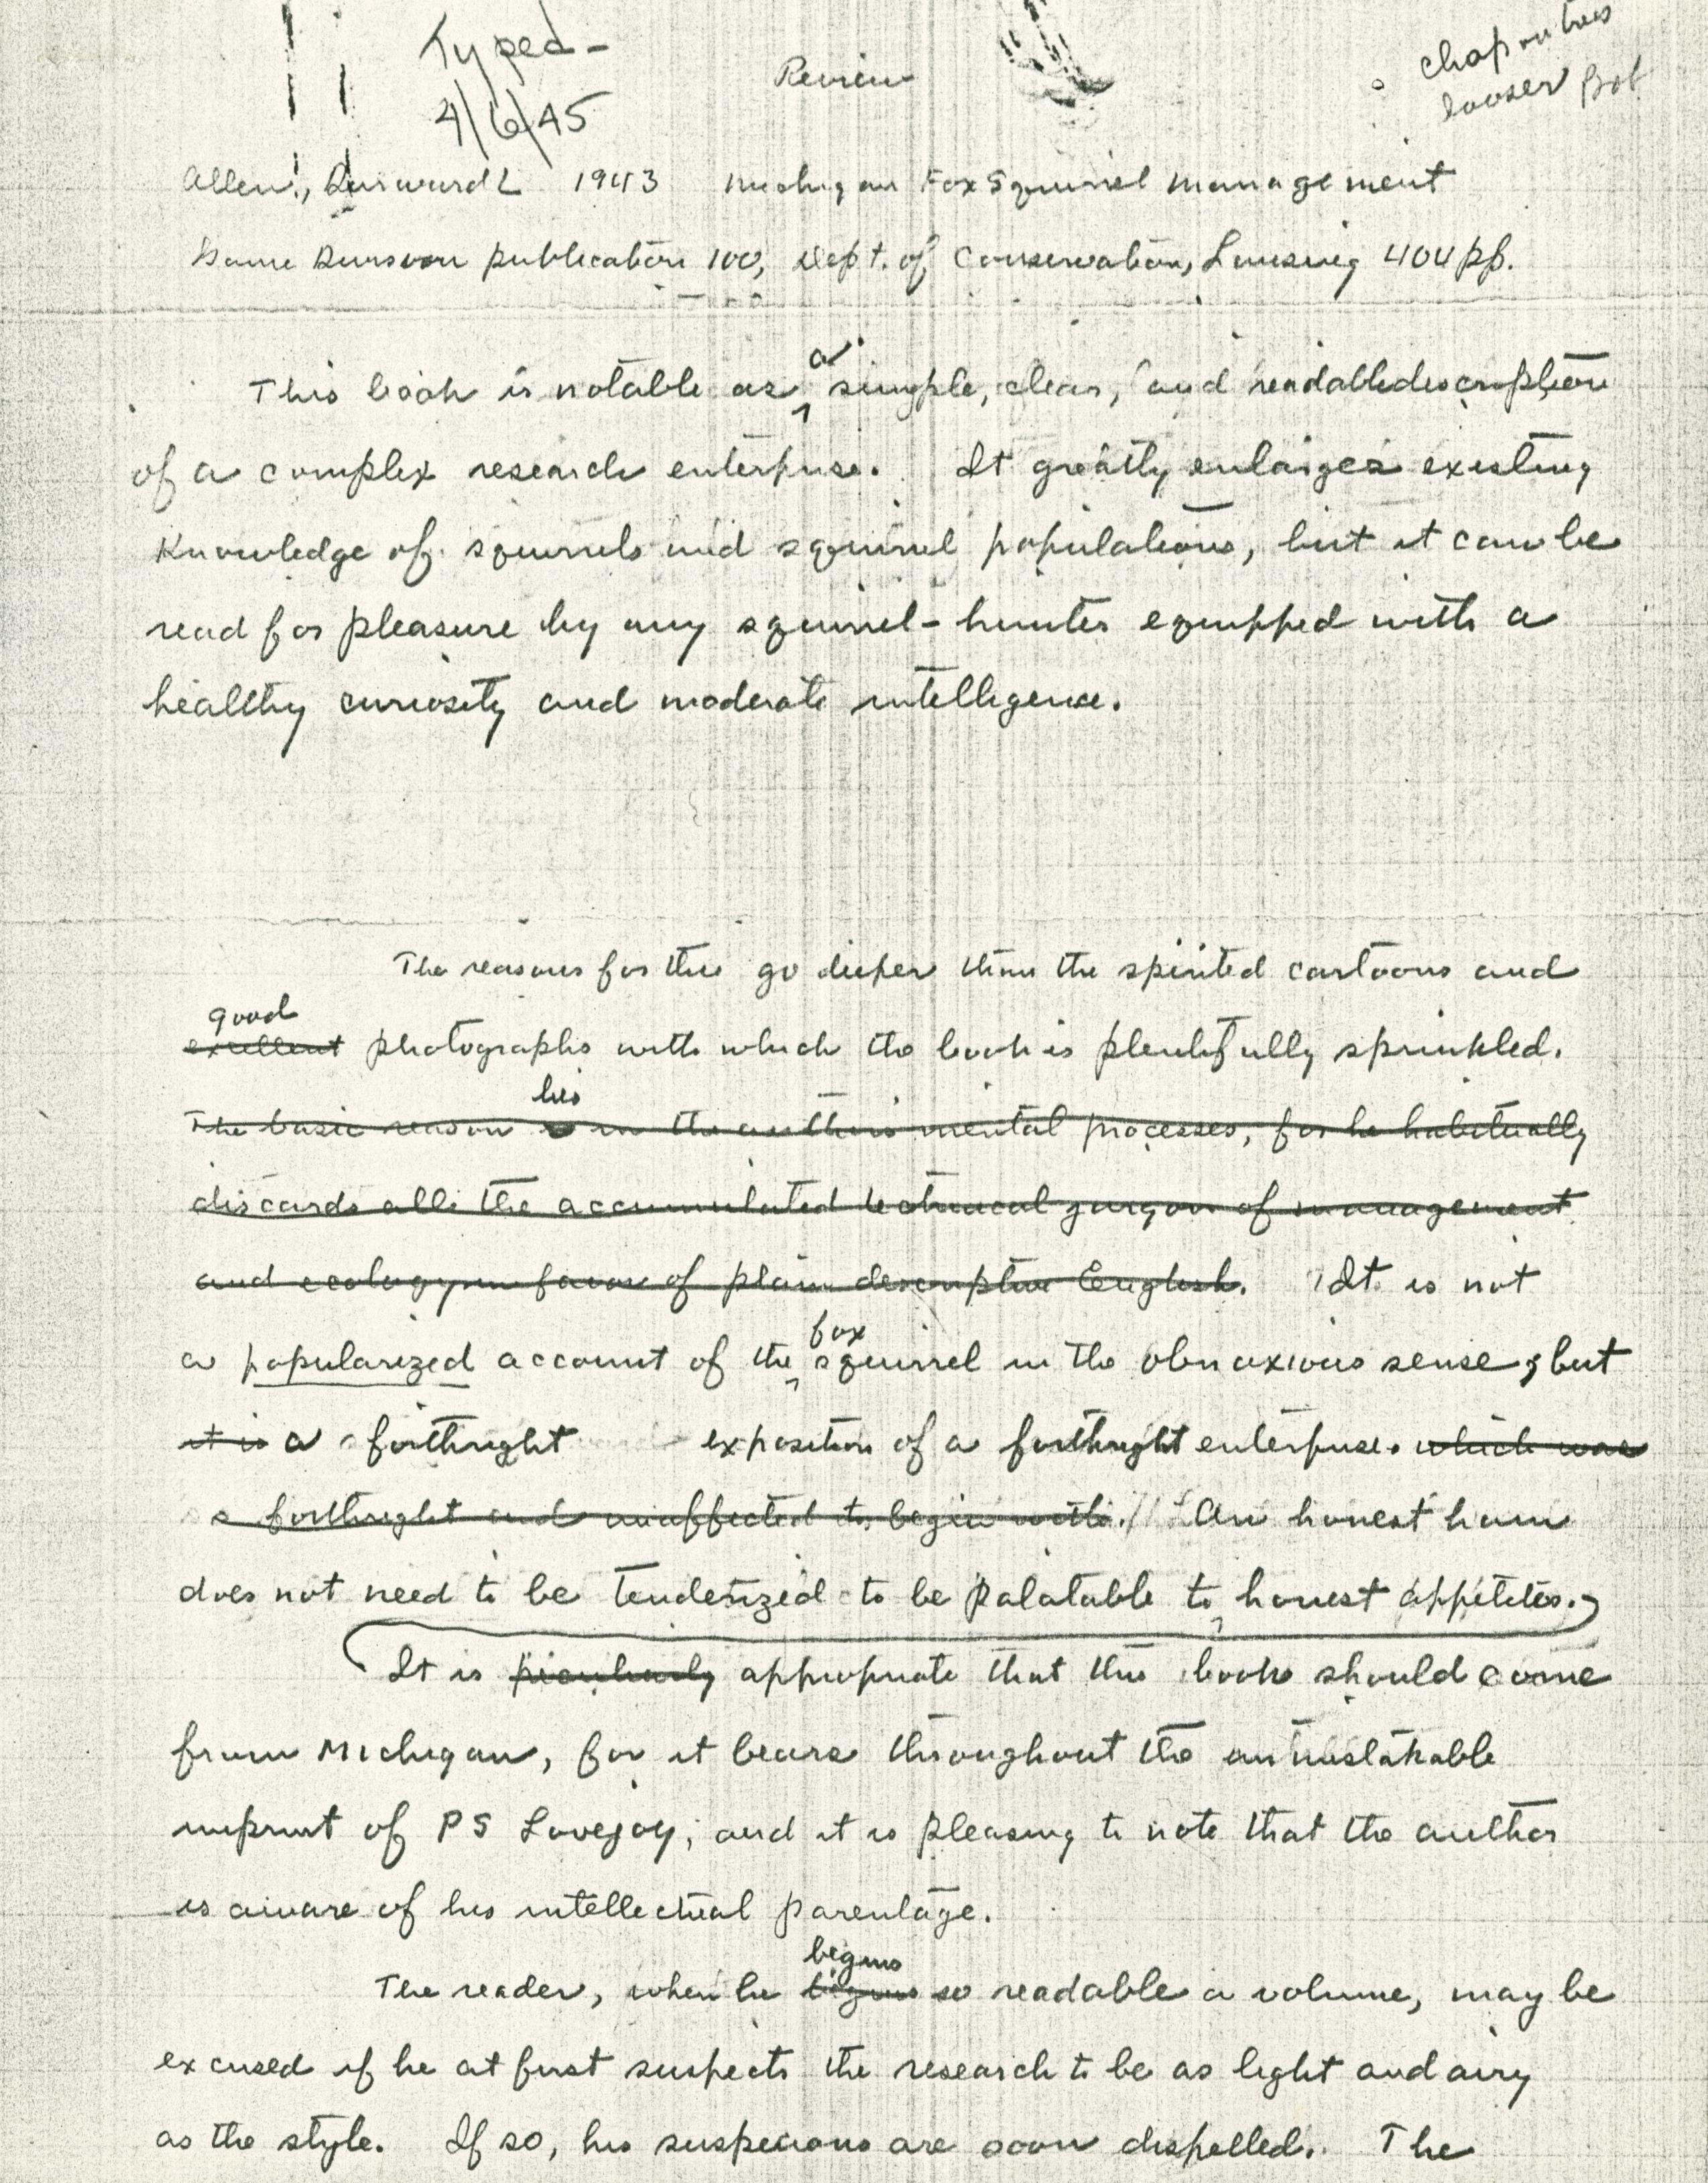 Typed -
4/6/45
Review
Allen, Durward L 1943 Michigan Fox Squirrel Management
Game Division publication 100, Dept. of Conservation, Lansing 404 pp.
a
This book is notable as simple, clear, and readable description
of a complex research enterprise. It greatly enlarges existing
knowledge of squirrels and squirrel populations, but it can be
read for pleasure by any squirrel-hunter equipped with a
healthy curiosity and moderate intelligence.
The reasons for this go deeper than the spirited cartoons and
good
excellent photographs with which the book is plentifully sprinkled.
lies
The basic reason is in the author's mental processes, for he habitually
discards all the accumulated technical jargon of management
and ecology in favor of plain descriptive English. It is not
fox
a popularized account of the squirrel in the obnoxious sense, but
it is a forthright exposition of a forthright enterprise. which was
a forthright and unaffected to begin with. An honest ham
does not need to be tenderized to be palatable to honest appetites.
It is peculiarly appropriate that this book should come
from Michigan, for it bears throughout the unmistakable
imprint of PS Lovejoy; and it is pleasing to note that the author
is aware of his intellectual parentage.
begins
The reader, when he begins so readable a volume, may be
excused if he at first suspects the research to be as light and airy
as the style. If so, his suspicions are soon dispelled. The